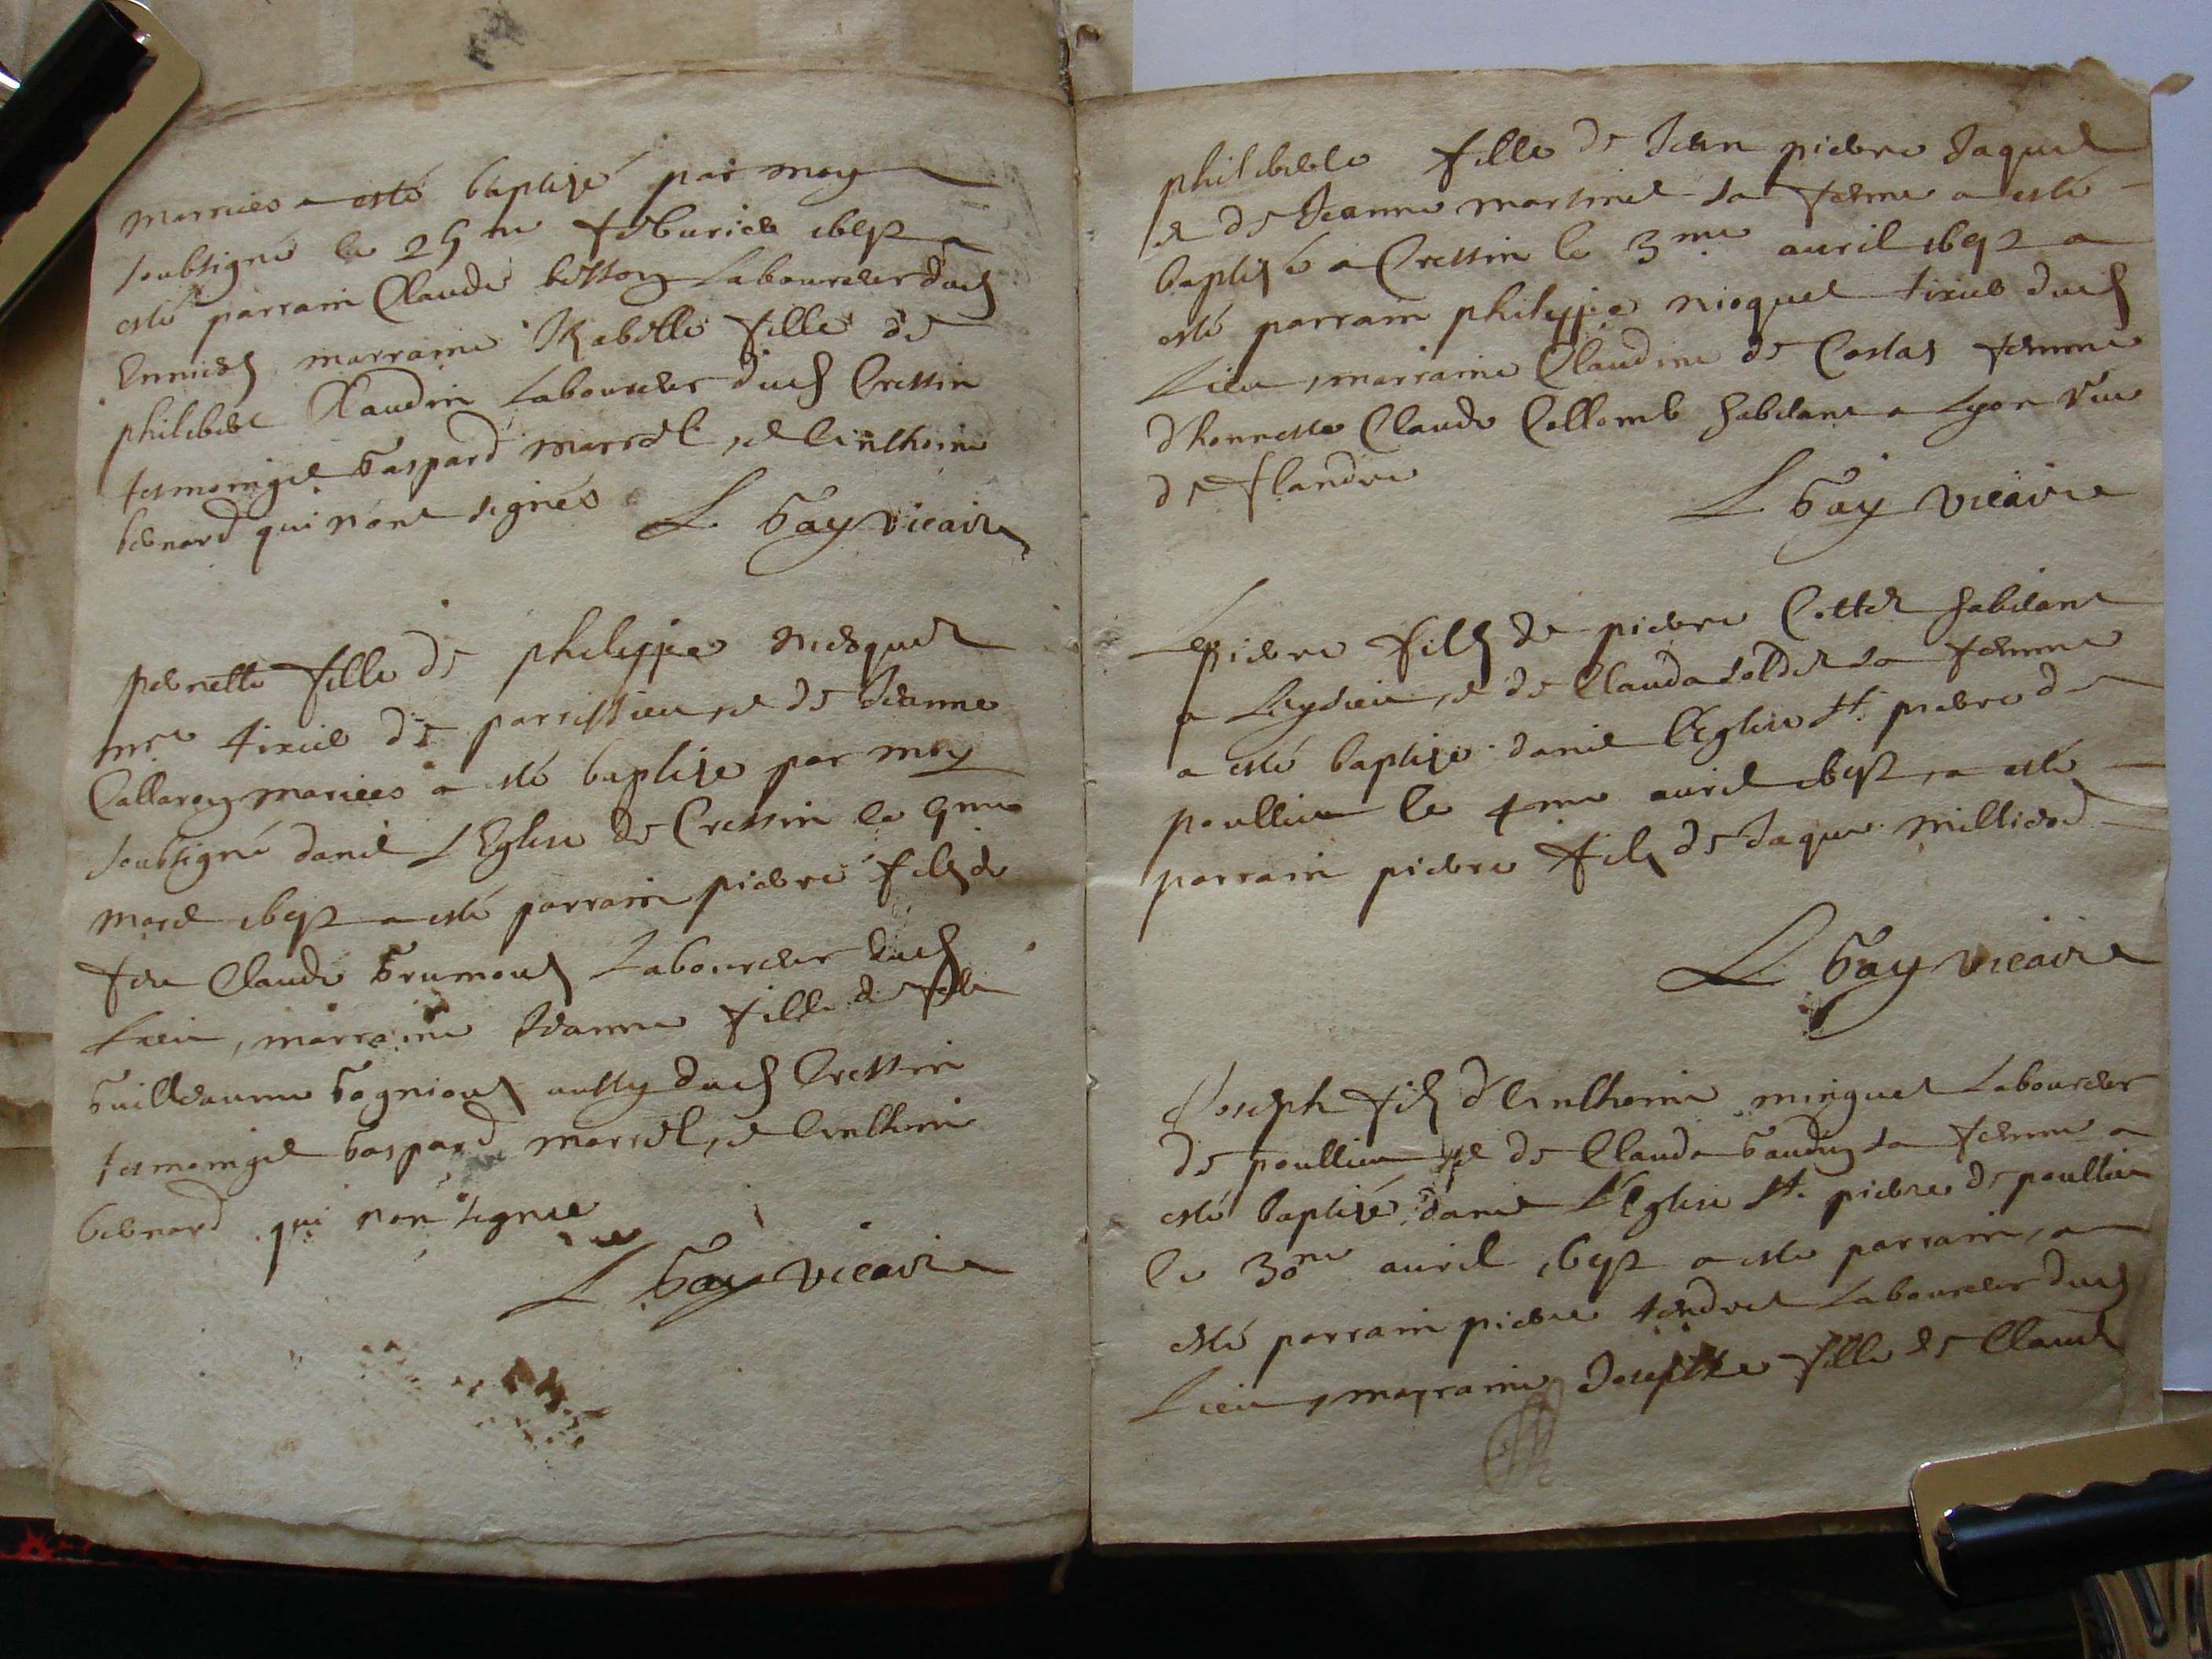 marries a esté baptizé par moy
soubsigné le 25me febvrier 1692 a
esté parrain Claude besson Laboureur dud
marraine Isabelle fille de
philibert Claudin Laboureur dud Cressin
tesmoings Gaspard marrel, et Anthoine
bernard qui nont signés
L Gay vicaire
pernette fille de philippe nioquet
mre tixier de parrissieu, et de Jeanne
Callarey mariees a sté baptize par moy
soubsigné dans L'Eglise de Cressin le 9me
mars 1692 a esté parrain pierre fils de
feu Claude Laboureur dud
Lieu, marraine Jeanne fille de feu
Guilleaume aussy dud Cressin
tesmoings Gaspard marrel, et Anthoine
bernard qui non signes
L Gay vicaire
philiberte fille de Jean pierre Jaquet
et de Jeanne martinet sa femme a esté
baptisé a Cressin le 3me auril 1692 a
esté parrain philippe nioquet tixier dud
Lieu, marraine Claudine de Costaz femme
d'honneste Claude Collomb habitant a Lyon rue
de flandre
L Gay vicaire
pierre fils de pierre Cottet habitant
a Leyssieu, et de Clauda soldet sa femme
a esté baptize dans l'Eglise St. pierre de
poullieu le 4me auril 1692, a esté
parrain pierre fils de Jaque milliend
L Gay vicaire
Joseph fils d'Anthoine minguet Laboureur
de poullieu et de Clauda Gaudin sa femme a
esté baptizé dans L'Eglise St. pierre de poullieu
le 30me auril 1692 a esté parrain, a
esté parrain pierre tendret Laboureur dud
Lieu, marraine Josephte fille de Claude